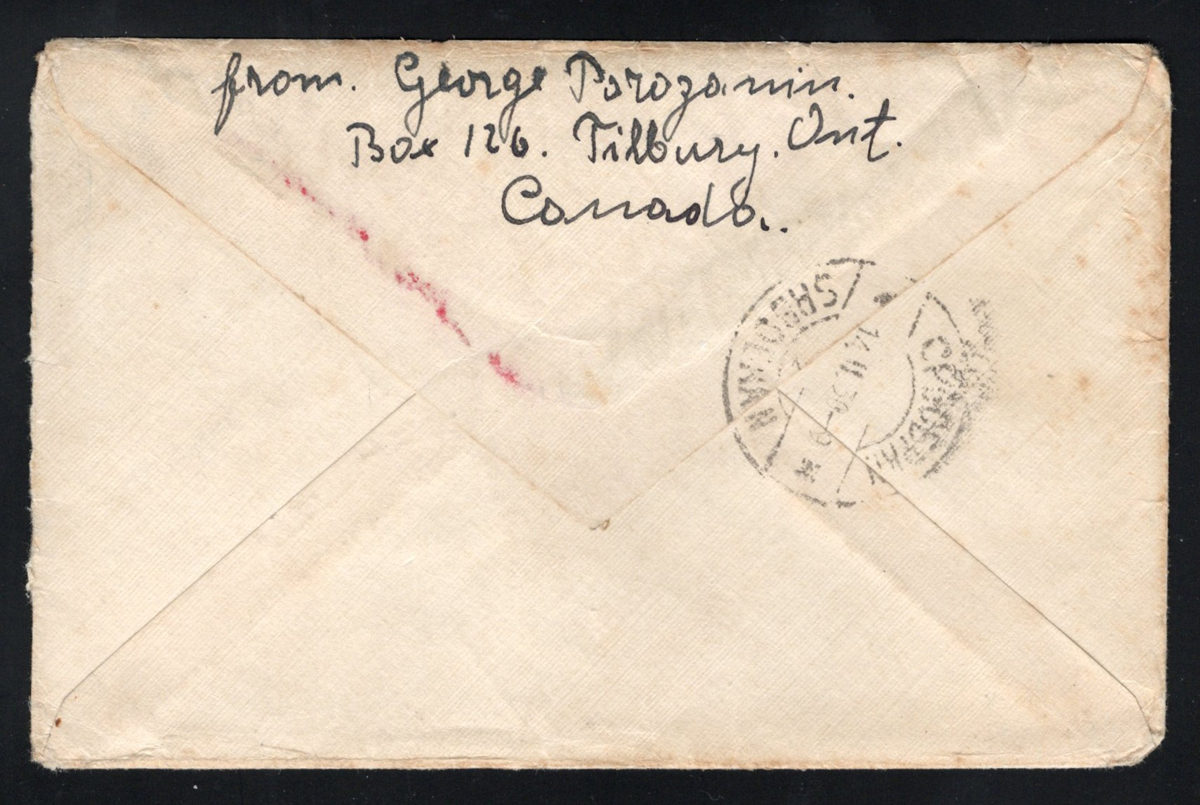 from. George Porozanin.
Box 126. Tilbury. Ont.
Canada..
14.II.39-9